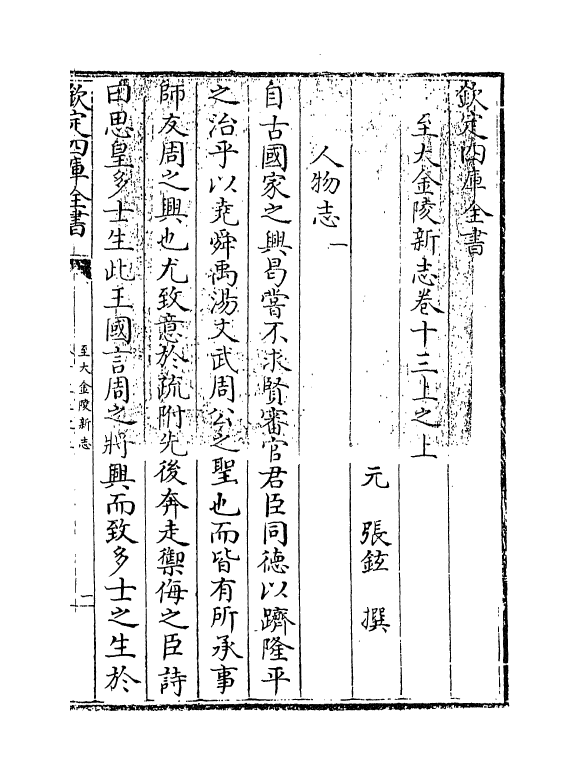 欽定四庫全書
至大金陵新志卷十三上之上
元 張鉉 撰
人物志一
自古國家之興曷嘗不求賢審官君臣同德以躋隆平
之治乎以堯舜禹湯文武周公之聖也而皆有所承事
師友周之興也尤致意於疏附先後奔走禦侮之臣詩
曰思皇多士生此王國言周之將興而致多士之生於
欽定四庫全書
至大金陵新志
一